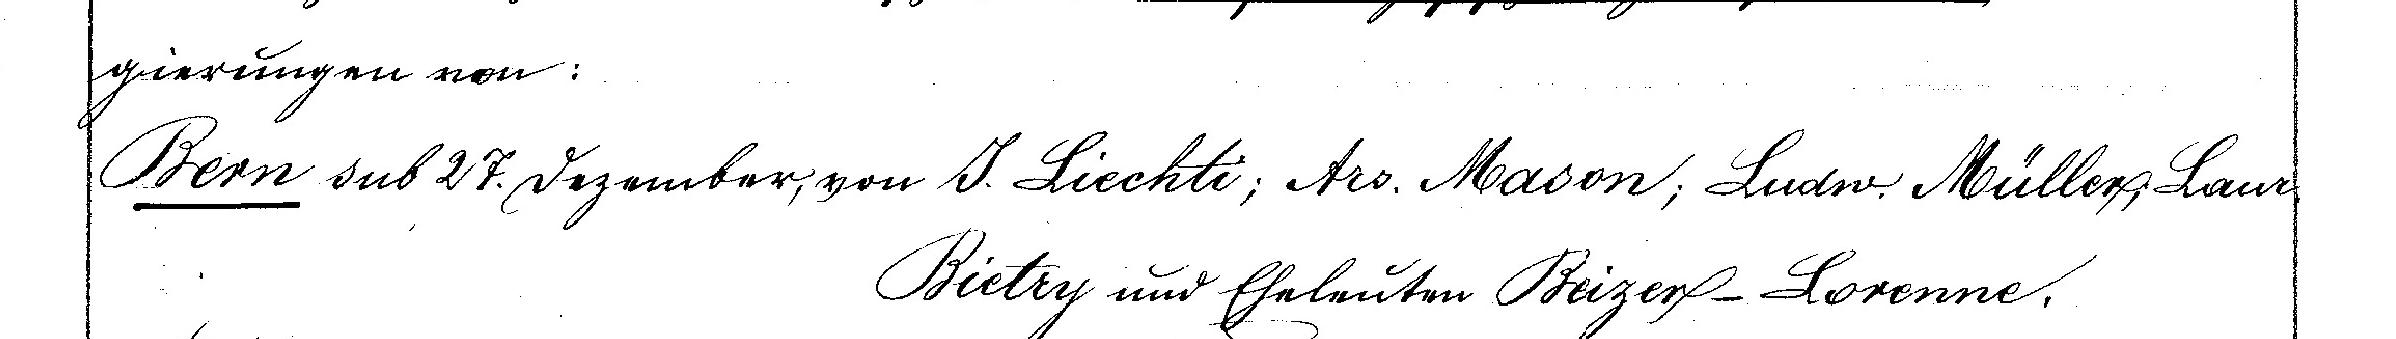 gierungen von:
Bern sub 27. Dezember, von J. Liechti; Ars. Mason; Ludw. Müller; Laur.
Bietry und Eheleuten Beizer-Lorenne.